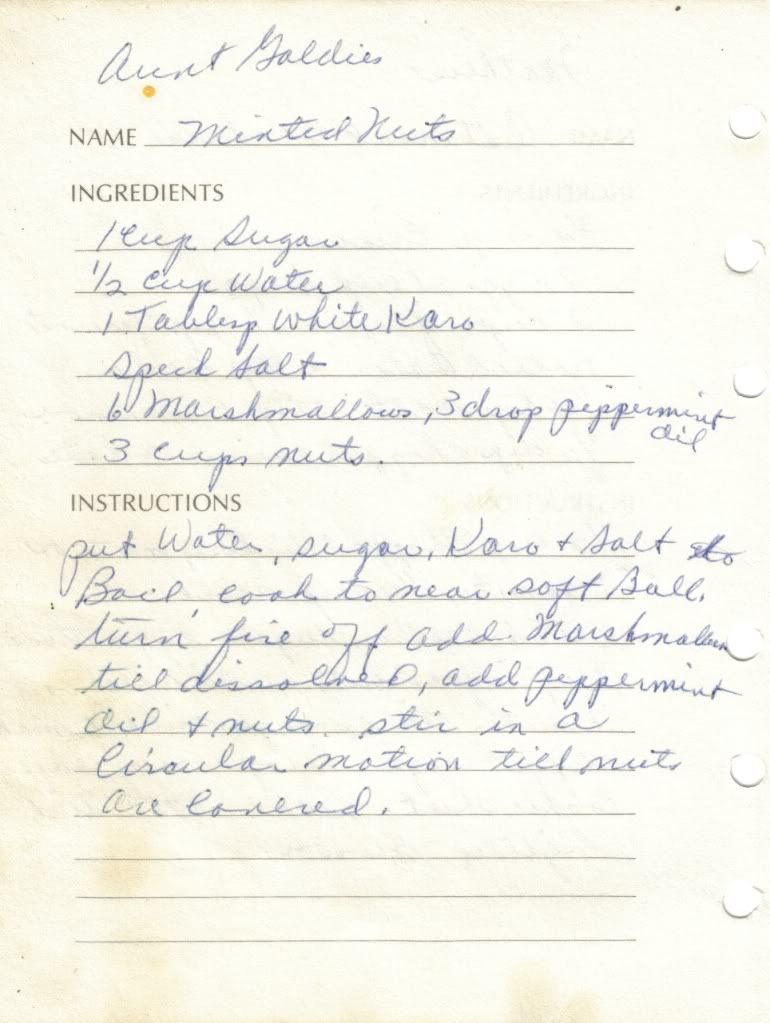 Aunt Goldies
NAME Minted Nuts
INGREDIENTS
1 Cup Sugar
1/2 Cup Water
1 Tablesp White Karo
Speck Salt
6 Marshmallows, 3 drop peppermint
oil
3 cups nuts.
INSTRUCTIONS
put Water, sugar, Karo + Salt to
Boil, cook to near soft Ball.
turn fire off add Marshmallows
till dissolved, add peppermint
oil + nuts. stir in a
Circular motion till nuts
are covered.